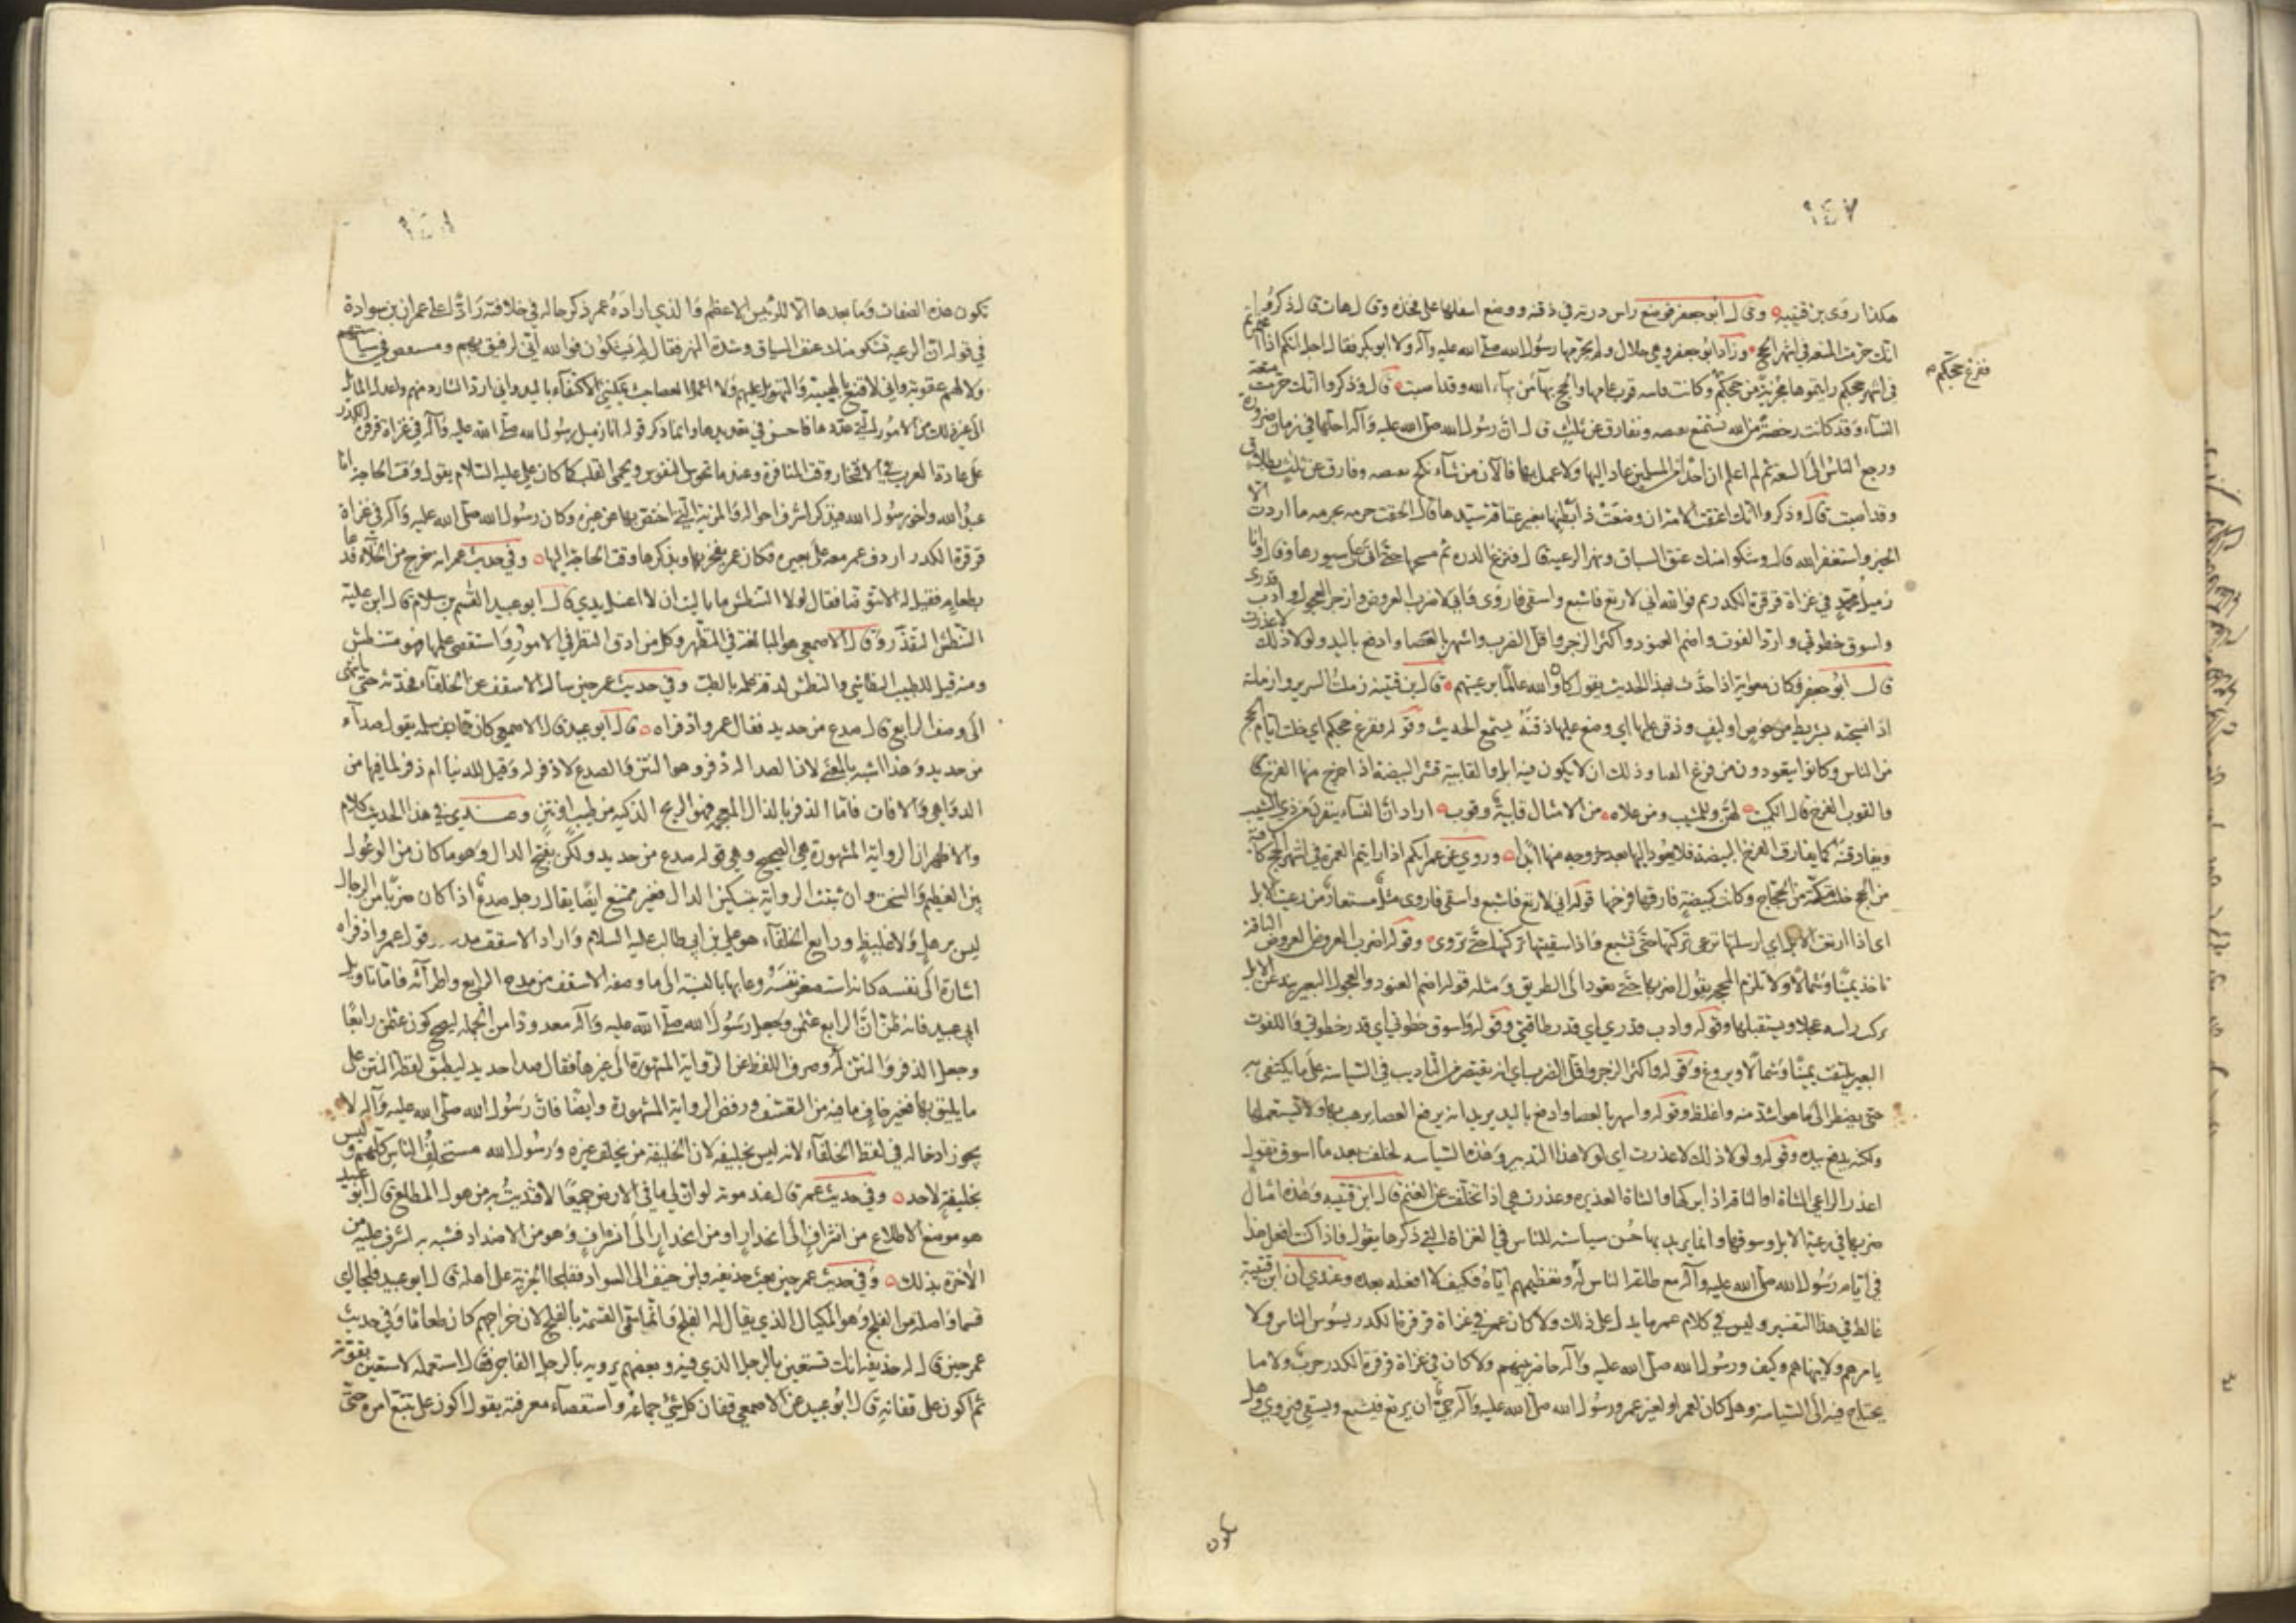 ٩٤٧
هكذا روى بن قتيبة وقال أبو جعفر فوضع راس درته في ذقنه ووضع اسفلها على فخذه وقال هات قال ذكروا
انك حرمت المتعة في اشهر الحج وزاد ابو جعفر وهي حلال ولم يحرمها رسول الله صلى الله عليه وآله ولا ابو بكر فقال اجل انكم اذا
في اشهر حجكم رايتموها مجزية من حجكم وكانت قابية قوب عامها والحج بهاء من بهاء الله وقد اصبت قال وذكروا انك حرمت متعة
فقرع حجكم
النساء وقد كانت رخصة من الله نستمتع بقبضه ونفارق عن ثلث قال ان رسول الله صلى الله عليه وآله احلها في زمان ضرورة
ورجع الناس الى السعة ثم لم اعلم ان احدا من المسلمين عاد اليها ولا عمل بها فالآن من شاء نكح بقبضه وفارق عن ثلث بطلاق
وقد اصبت قال وذكروا انك اعتقت الامة ان وضعت ذا بطنها بغير عتاقة سيدها قال الحقت حرمه بحرمه ما اردت الا
الخير واستغفر الله قال وشكوا منك عنف السياق ونهر الرعية قال فنزع الدره ثم مسحها حتى اتى على سيورها وقال وانا
زميل محمد في غزاة قرقرة الكدر ثم فوالله اني لارتع فاشبع واسقي فاروي واني لاضرب العروض وازجر العجول وادب قدري
واسوق خطوتي وارد اللفوت واضم العنود واكثر الزجر واقل الضرب واشهر بالعصا وادفع باليد ولولا ذلك لاعذرت
قال ابو جعفر وكان معوية اذا حدث بهذا الحديث يقول كان والله عالما برعيتهم قال بن قتيبة زملت السرير وازملته
اذا نسجته بشريط من خوص او ليف وذقن عليها اي وضع عليها ذقنه يستمع الحديث وقوله فقرع حجكم اي خلت ايام الحج
من الناس وكانوا يتعوذون من قرع الفناء وذلك ان لا يكون فيه ابل والقابية قشر البيضة اذا خرج منها الفرخ
والقوب الفرخ قال الكميت لهن وللمشيب ومن علاه من الامثال قابية وقوب اراد ان النساء ينفرن عن ذي الشيب
ويفارقنه كما يفارق الفرخ البيضة فلا يعود اليها بعد خروجه منها ابدا وروي عن عمر انكم اذا رايتم العمرة في اشهر الحج كافية
من الحج خلت مكة من الحجاج وكانت كبيضة فارقها فرخها قوله اني لارتع فاشبع واسقي فاروي مثل مستعار من رعيت الابل
اي اذا ارتعت الابل اي ارسلتها ترعى تركتها حتى تشبع واذا سقيتها تركتها حتى تروى وقوله اضرب العروض العروض الناقة
تاخذ يمينا وشمالا ولا تلزم المحجة يقول اضربها حتى تعود الى الطريق ومثله قوله اضم العنود والعجول البعير يند عن الابل
يركب راسه عجلا ويستقبلها وقوله وادب قدري اي قدر طاقتي وقوله واسوق خطوتي اي قدر خطوتي واللفوت
البعير يلتفت يمينا وشمالا ويروغ وقوله واكثر الزجر واقل الضرب اي انه يقتصر من التاديب في السياسة على ما يكتفى به
حتى يضطر الى ما هو اشد منه واغلظ وقوله واشهر بالعصا وادفع باليد يريد انه يرفع العصا يرهب بها ولا يستعملها
ولكنه يدفع بيده وقوله ولولا ذلك لاعذرت اي لولا هذا التدبير وهذه السياسة لخلفت بعض ما اسوق تقول
اعذر الراعي الشاة او الناقة اذا تركها والشاة العذيرة وعذرت هي اذا تخلفت عن الغنم قال ابن قتيبة وهذه امثال
ضربها في رعية الابل وسوقها وانما يريد بها حسن سياسته للناس في الغزاة التي ذكرها يقول فاذا كنت افعل هذا
في ايام رسول الله صلى الله عليه وآله مع طاعة الناس له وتعظيمهم اياه فكيف لا افعله بعده وعندي ان ابن قتيبة
غالط في هذا التفسير وليس في كلام عمر ما يدل على ذلك ولا كان عمر في غزاة قرقرة الكدر يسوس الناس ولا
يامرهم ولا ينهاهم وكيف ورسول الله صلى الله عليه وآله حاضر بينهم ولا كان في غزاة قرقرة الكدر حرب ولا ما
يحتاج فيه الى السياسة وهل كان لعمر او لغير عمر ورسول الله صلى الله عليه وآله حي ان يرتع فيشبع ويسقي فيروي وهل
تكون
٩٤٨
تكون هذه الصفات وما بعدها الا للرئيس الاعظم والذي اراده عمر ذكر حاله في خلافته رادا على عمران بن سوادة
في قوله ان الرعية تشكو منك عنف السياق وشدة النهر فقال ليشكون فوالله اني لرفيق بهم ومستقص في سياستهم
ولا لهم عقوبة واني لاقنع بالهيبة والتهويل عليهم ولا اعمل العصا حيث يمكنني الاكتفاء باليد واني ارد الشارد منهم واعدل المائل
الى غير ذلك من الامور التي عددها فاحسن في تعديدها وانما ذكر قوله انا زميل رسول الله صلى الله عليه وآله في غزاة قرقرة الكدر
على عادة العرب في الافتخار وقت المنافرة وعند ما تجيش النفوس ويحمى القلب كما كان علي عليه السلام يقول وقت الحاجة انا
عبد الله واخو رسول الله فيذكر اشرف احواله والمزية التي اختص بها عن غيره وكان رسول الله صلى الله عليه وآله في غزاة
قرقرة الكدر اردف عمر معه على بعيره فكان عمر يفخر بها ويذكرها وقت الحاجة اليها وفي حديث عمر انه خرج من الخلاء فدعا
بطعام فقيل له الا تتوضا فقال لولا التنطس ما باليت ان لا اغسل يدي قال ابو عبيد القسم بن سلام قال ابن علية
التنطس التقذر وقال الاصمعي هو المبالغة في التطهر وكل من ادق النظر في الامور واستقصى علمها فهو متنطس
ومنه قيل للطبيب النطاسي والنطيس لدقة علمه بالطب وفي حديث عمر حين سال الاسقف عن الخلفاء فحدثه حتى انتهى
الى وصف الرابع قال صدع من حديد فقال عمر وا ذفراه قال ابو عبيد قال الاصمعي كان حماد بن سلمة يقول صداء
من حديد وهذا اشبه بالمعنى لان الصدا له ذفر وهو النتن والصدع لا ذفر له وقيل للدنيا ام ذفر لما فيها من
الدواهي والافات فاما الذفر بالذال المعجمة فهو الريح الذكية من طيب او نتن وعندي في هذا الحديث كلام
والاظهر ان الرواية المشهورة هي الصحيح وهي قوله صدع من حديد ولكن بفتح الدال وهو ما كان من الوعول
بين العظيم والشخت وان ثبتت الرواية بتسكين الدال فغير ممتنع ايضا يقال رجل صدع اذا كان ضربا من الرجال
ليس برهل ولا غليظ ورابع الخلفاء هو علي بن ابي طالب عليه السلام واراد الاسقف مدحه وقول عمر وا ذفراه
اشارة الى نفسه كانه استصغر نفسه وعابها بالنسبة الى ما وصفه الاسقف من مدح الرابع واطرائه فاما تاويل
ابي عبيد فانه ظن ان الرابع عثمن وجعل رسول الله صلى الله عليه وآله معدودا من الجملة ليصح كون عثمن رابعا
وجعل الذفر والنتن له وصرف اللفظ عن الرواية المشهورة الى غيرها فقال صدا حديد ليطبق لفظ النتن على
ما يليق بها فغير خاف ما فيه من التعسف ورفض الرواية المشهورة وايضا فان رسول الله صلى الله عليه وآله لا
يجوز ادخاله في لفظ الخلفاء لانه ليس بخليفة لان الخليفة من يخلف غيره ورسول الله مستخلف الناس كلهم وليس
بخليفة لاحد وفي حديث عمر قال عند موته لو ان لي ما في الارض جميعا لافتديت به من هول المطلع قال ابو عبيد
هو موضع الاطلاع من اشراف الى انحدار او من انحدار الى اشراف وهو من الاضداد فشبه ما اشرف عليه من
الآخرة بذلك وفي حديث عمر حين بعث حذيفة وابن حنيف الى السواد ففلجا الجزية على اهله قال ابو عبيد فلجا اي
قسما واصله من الفلج وهو المكيال الذي يقال له الفالج وانما سمي القسمة بالفلج لان خراجهم كان طعاما وفي حديث
عمر حين قال له حذيفة انك تستعين بالرجل الذي فيه وبعضهم يرويه بالرجل الفاجر فقال استعمله لاستعين بقوته
ثم اكون على قفانه قال ابو عبيد عن الاصمعي قفان كل شيء جماعه واستقصاء معرفته يقول اكون على تتبع امره حتى